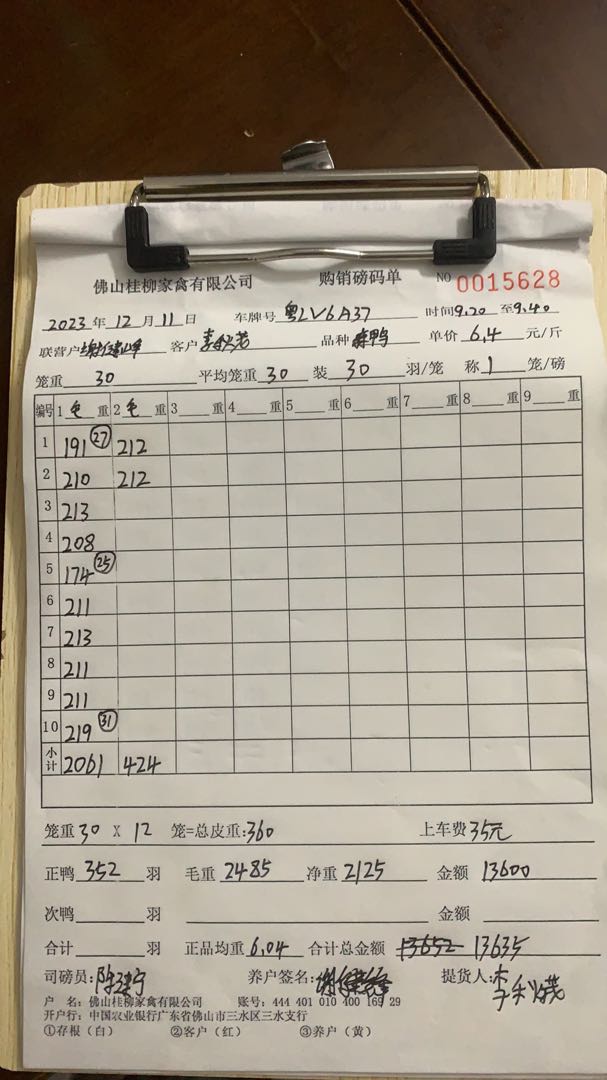 佛山桂柳家禽有限公司 购销磅码单 NO 0015628
2023年12月11日 车牌号 粤LV6A37 时间9.20至9.40
联营户 客户 品种 麻鸭 单价 6.4 元/斤
笼重 30 平均笼重 30 装 30 羽/笼 称 1 笼/磅
编号 1 毛 重 2 毛 重 3 重 4 重 5 重 6 重 7 重 8 重 9 重
1 191 27 212
2 210 212
3 213
4 208
5 174 25
6 211
7 213
8 211
9 211
10 219 31
小计 2061 424
笼重30 X 12 笼=总皮重:360 上车费35元
正鸭 352 羽 毛重 2485 净重 2125 金额 13600
次鸭 羽 金额
合计 羽 正品均重 6.04 合计总金额 13652 13635
司磅员: 养户签名: 提货人:
户 名: 佛山桂柳家禽有限公司 账号: 444 401 010 400 169 29
开户行: 中国农业银行广东省佛山市三水区三水支行
①存根（白） ②客户（红） ③养户（黄）